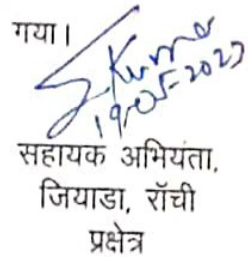 गया।
S. Kumar
19-05-2023
सहायक अभियंता,
जियाडा, राँची
प्रक्षेत्र